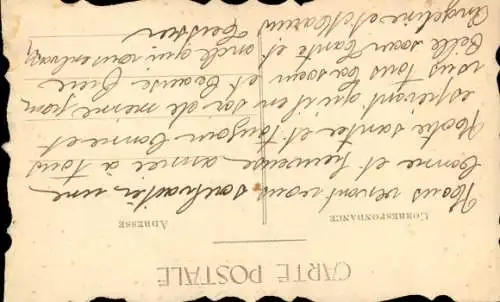 CARTE POSTALE
CORRESPONDANCE
ADRESSE
Nous venont vous souhaiter une
bonne et heureuse année a tous
Notre santee et toujour bonne et
esperent qu'il en soi de meme pour
vous tous bonsoir et beause frere
Belle soeur tante et oncle qui vous embrasse
Angeline et Marius